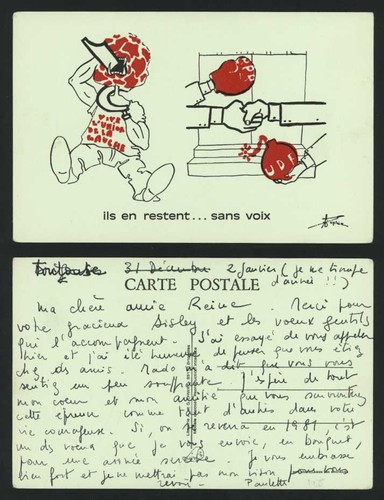 VIVE
L'UNION
DE LA
GAUCHE
UDF
ils en restent... sans voix
Toulouse 31 Décembre 2 Janvier (je me trompe
CARTE POSTALE d'année !!)
Ma chère amie Reine. Merci pour
votre gracieux Sisley et les voeux gentils
qui l'accompagnent. J'ai essayé de vous appeler
hier et j'ai été heureuse de penser que vous étiez
chez des amis. Mado m'a dit que vous vous
sentiez un peu souffrante. J'espère de tout
mon coeur et mon amitié que vous surmonterez
cette épreuve comme tant d'autres dans votre
vie courageuse. Si, on se reverra en 1981, c'est un
des voeux que je vous envoie, en bouquet,
pour une année sereine. Je vous embrasse
bien fort et je ne mettrai pas mon
revoir. Paulette